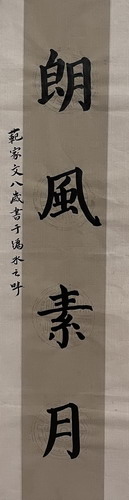 朗風素月
範家文八歲書于溈水之畔